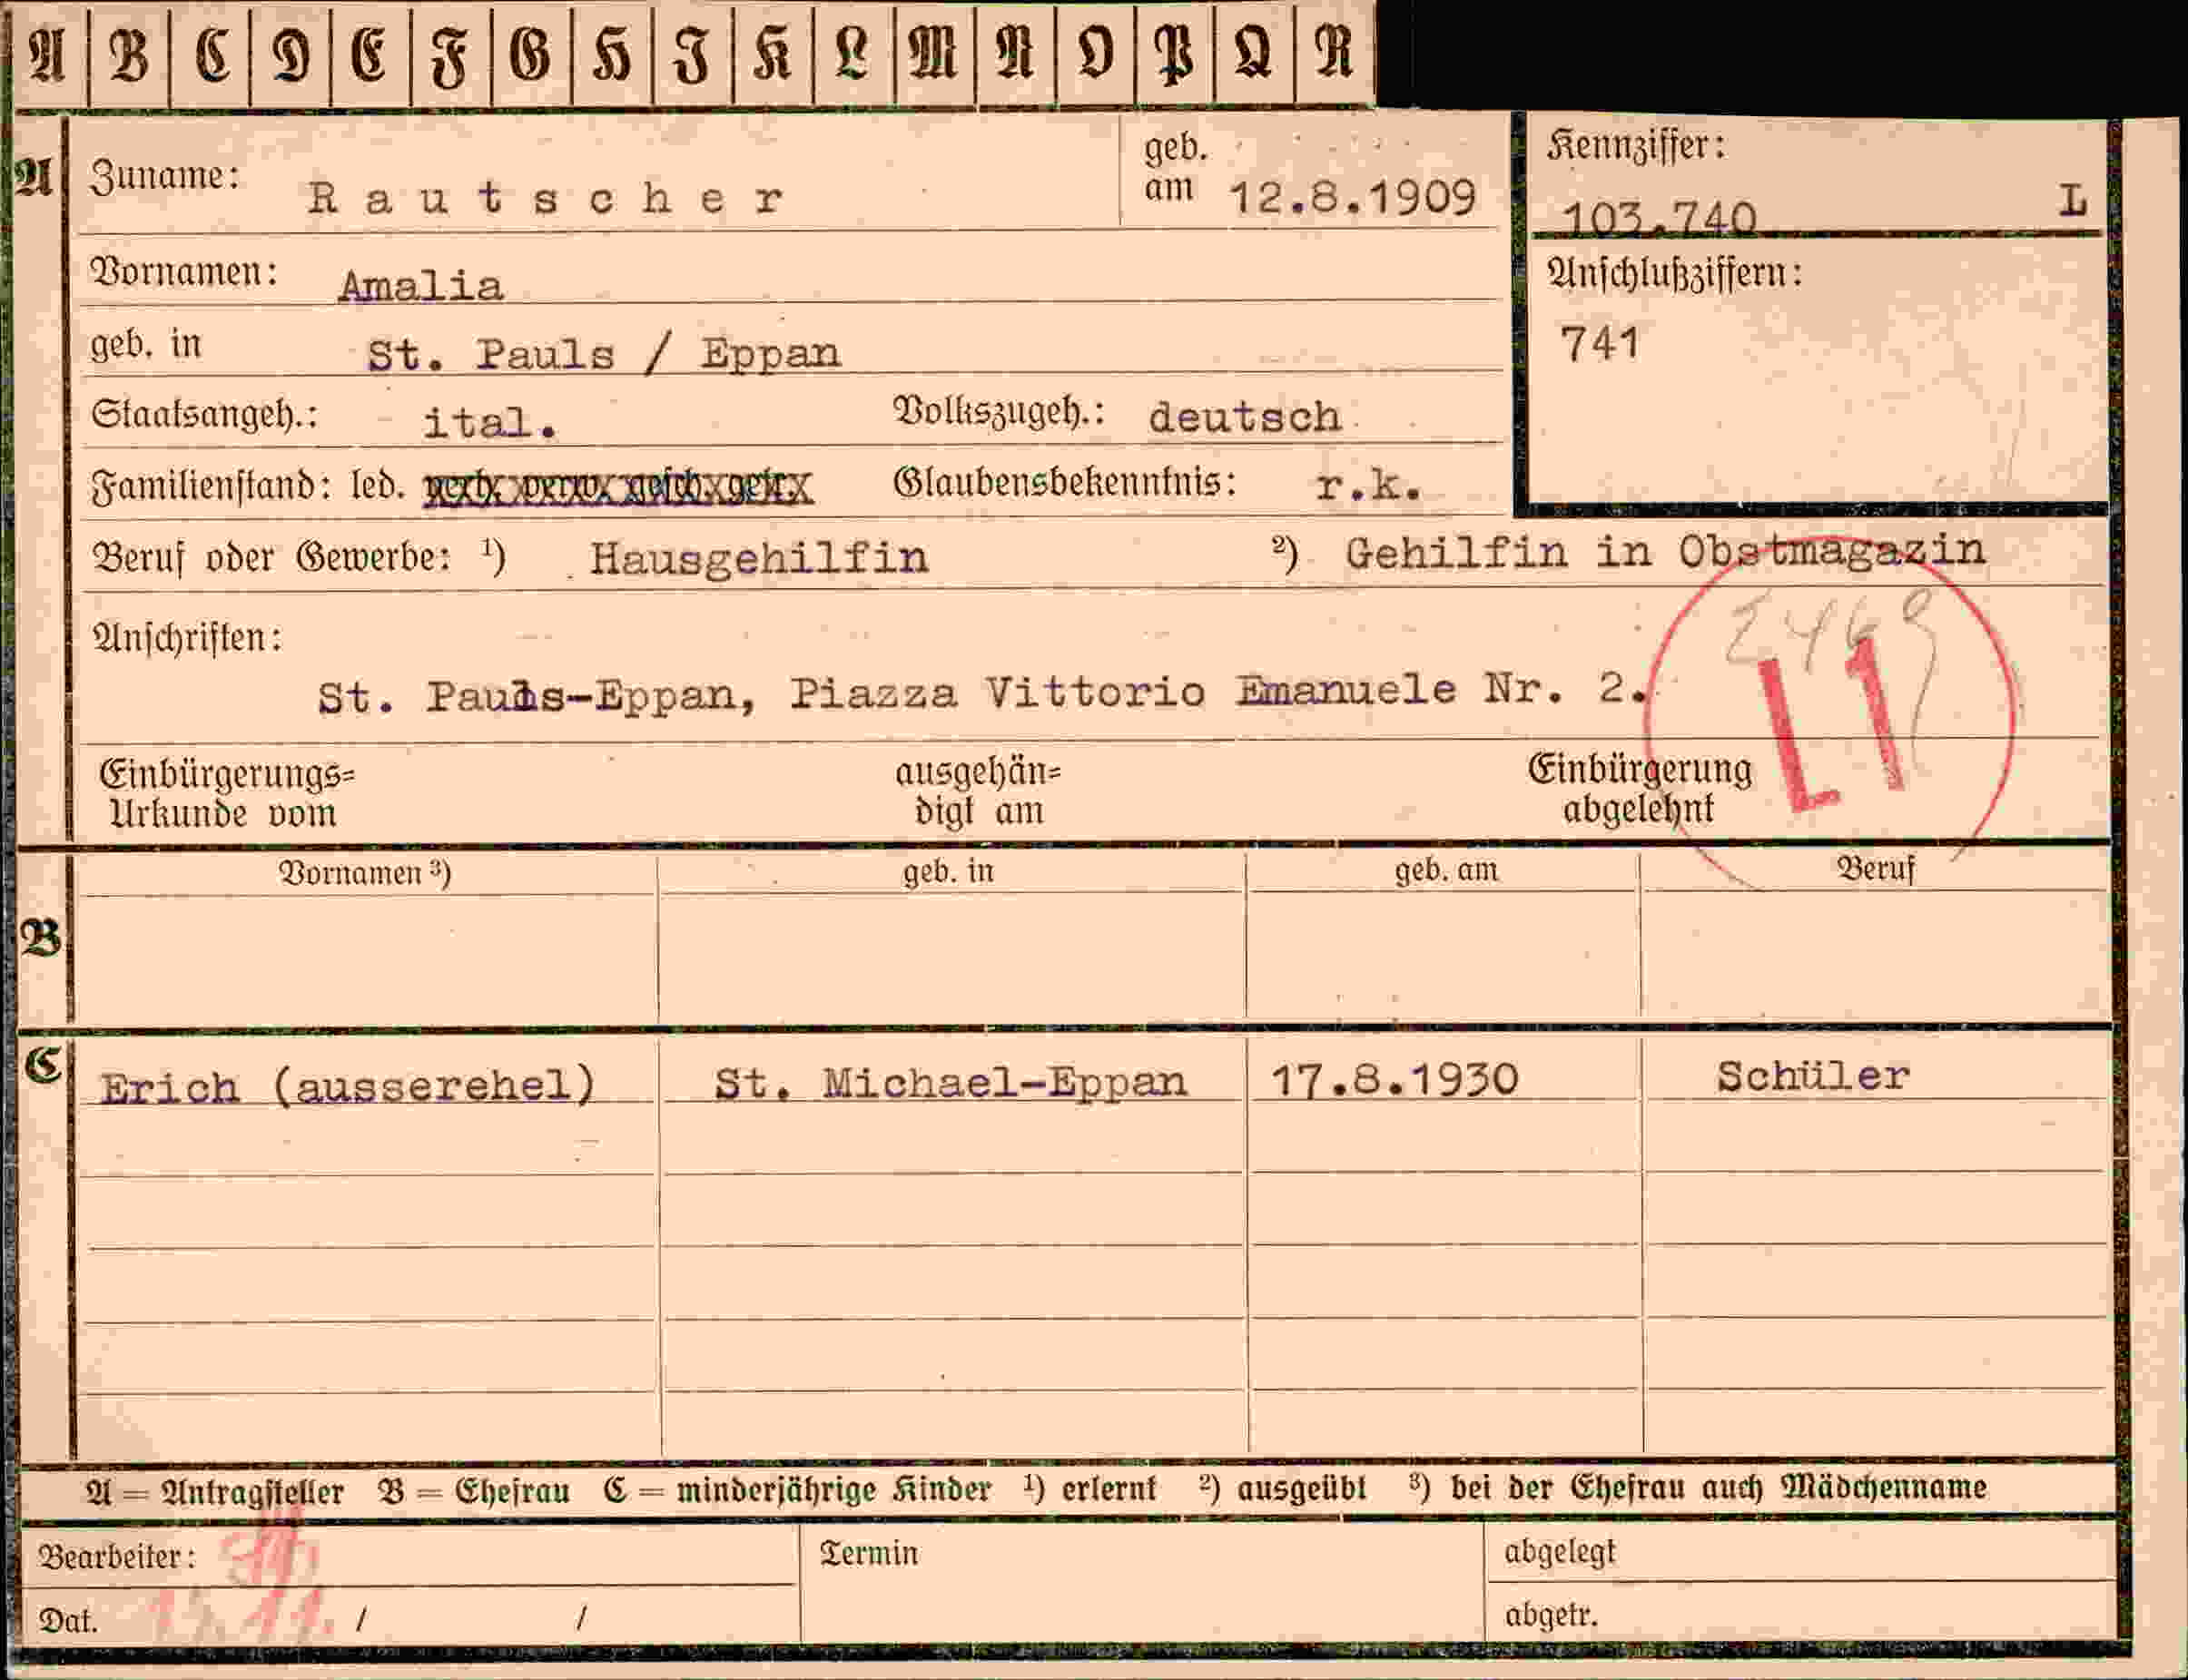 A B C D E F G H I K L M N O P Q R
A Zuname: Rautscher geb. am 12.8.1909 Kennziffer: 103.740 L
Vornamen: Amalia Anschlußziffern:
geb. in St. Pauls / Eppan 741
Staatsangeh.: ital. Volkszugeh.: deutsch
Familienstand: led. Glaubensbekenntnis: r.k.
Beruf oder Gewerbe: ¹) Hausgehilfin ²) Gehilfin in Obstmagazin
Anschriften:
St. Pauls-Eppan, Piazza Vittorio Emanuele Nr. 2.
L1
Einbürgerungs= ausgehän= Einbürgerung
Urkunde vom digt am abgelehnt
Vornamen ³) geb. in geb. am Beruf
B
C Erich (ausserehel) St. Michael-Eppan 17.8.1930 Schüler
A = Antragsteller B = Ehefrau C = minderjährige Kinder ¹) erlernt ²) ausgeübt ³) bei der Ehefrau auch Mädchenname
Bearbeiter: Termin abgelegt
Dat. / / abgetr.